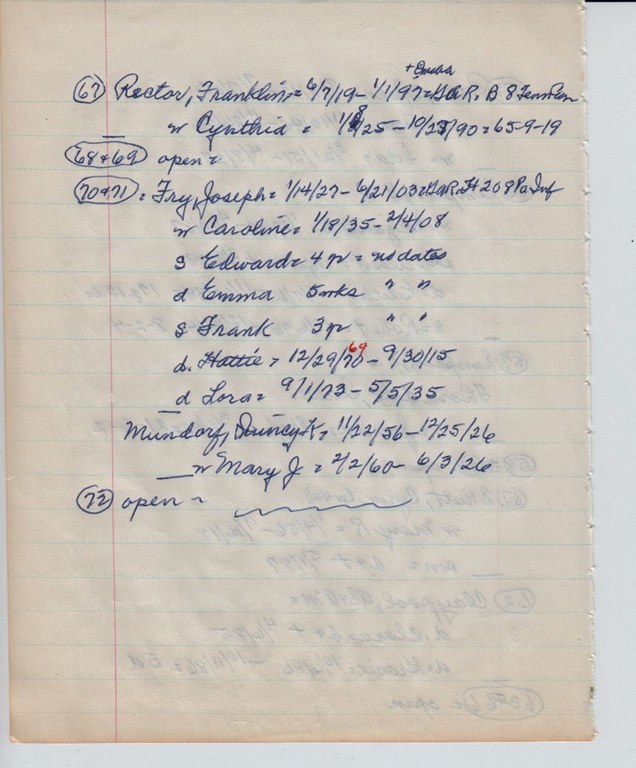 67 Rector, Franklin = 6/7/19 - 1/1/97 = GAR. B 8 Tenn
w Cynthia = 1/8/25 - 10/27/90 = 65-9-19
68 & 69 open =
70 & 71 = Fry, Joseph = 1/14/27 - 6/21/03 = GAR. H 208 Pa Inf
w Caroline = 1/18/35 - 2/4/08
s Edward = 4 yr = no dates
d Emma 5 wks " "
s Frank 3 yr " "
d. Hattie = 12/29/70 69 - 9/30/15
d Lora = 9/1/73 - 5/5/35
Mundorf, Quincy K = 11/22/56 - 12/25/26
w Mary J = 2/2/60 - 6/3/26
72 open =